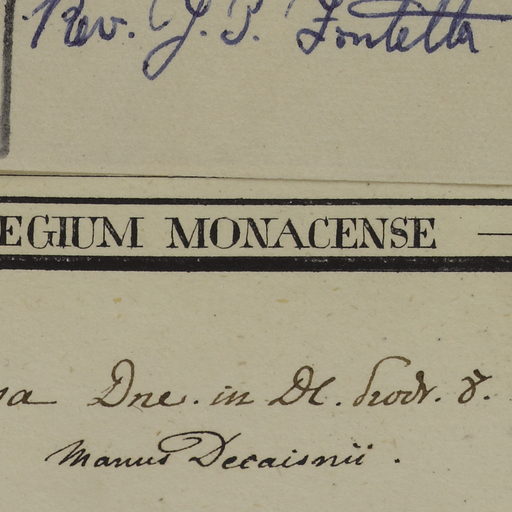 Rev. J. P. Fontella
EGIUM MONACENSE —
Dne. in DC. prodr. 8.
Manus Decaisnii.